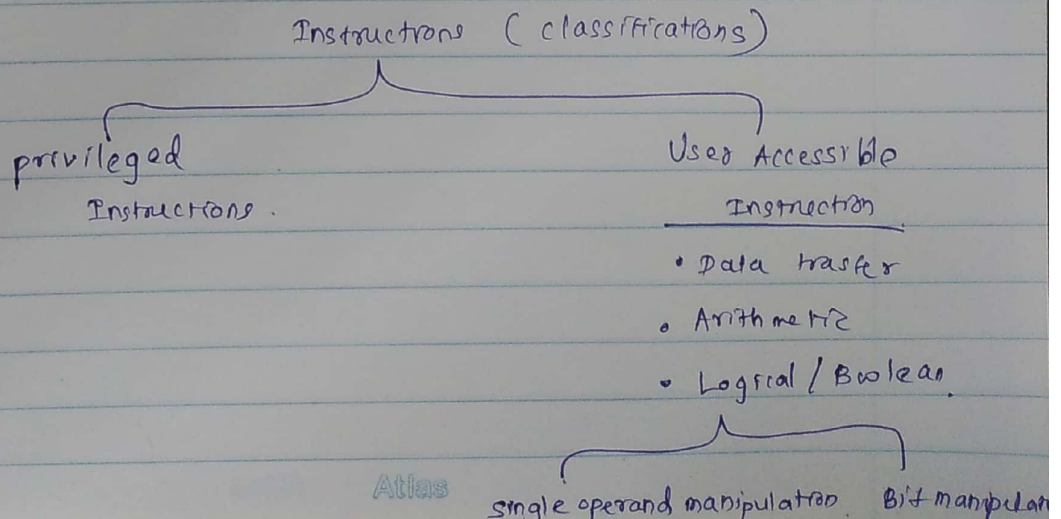 Instructions (classifications)
privileged
Instructions.
User Accessible
Instruction
• Data trasfer
• Arithmetic
• Logical / Boolean.
Atlas
single operand manipulation. Bit manipulan